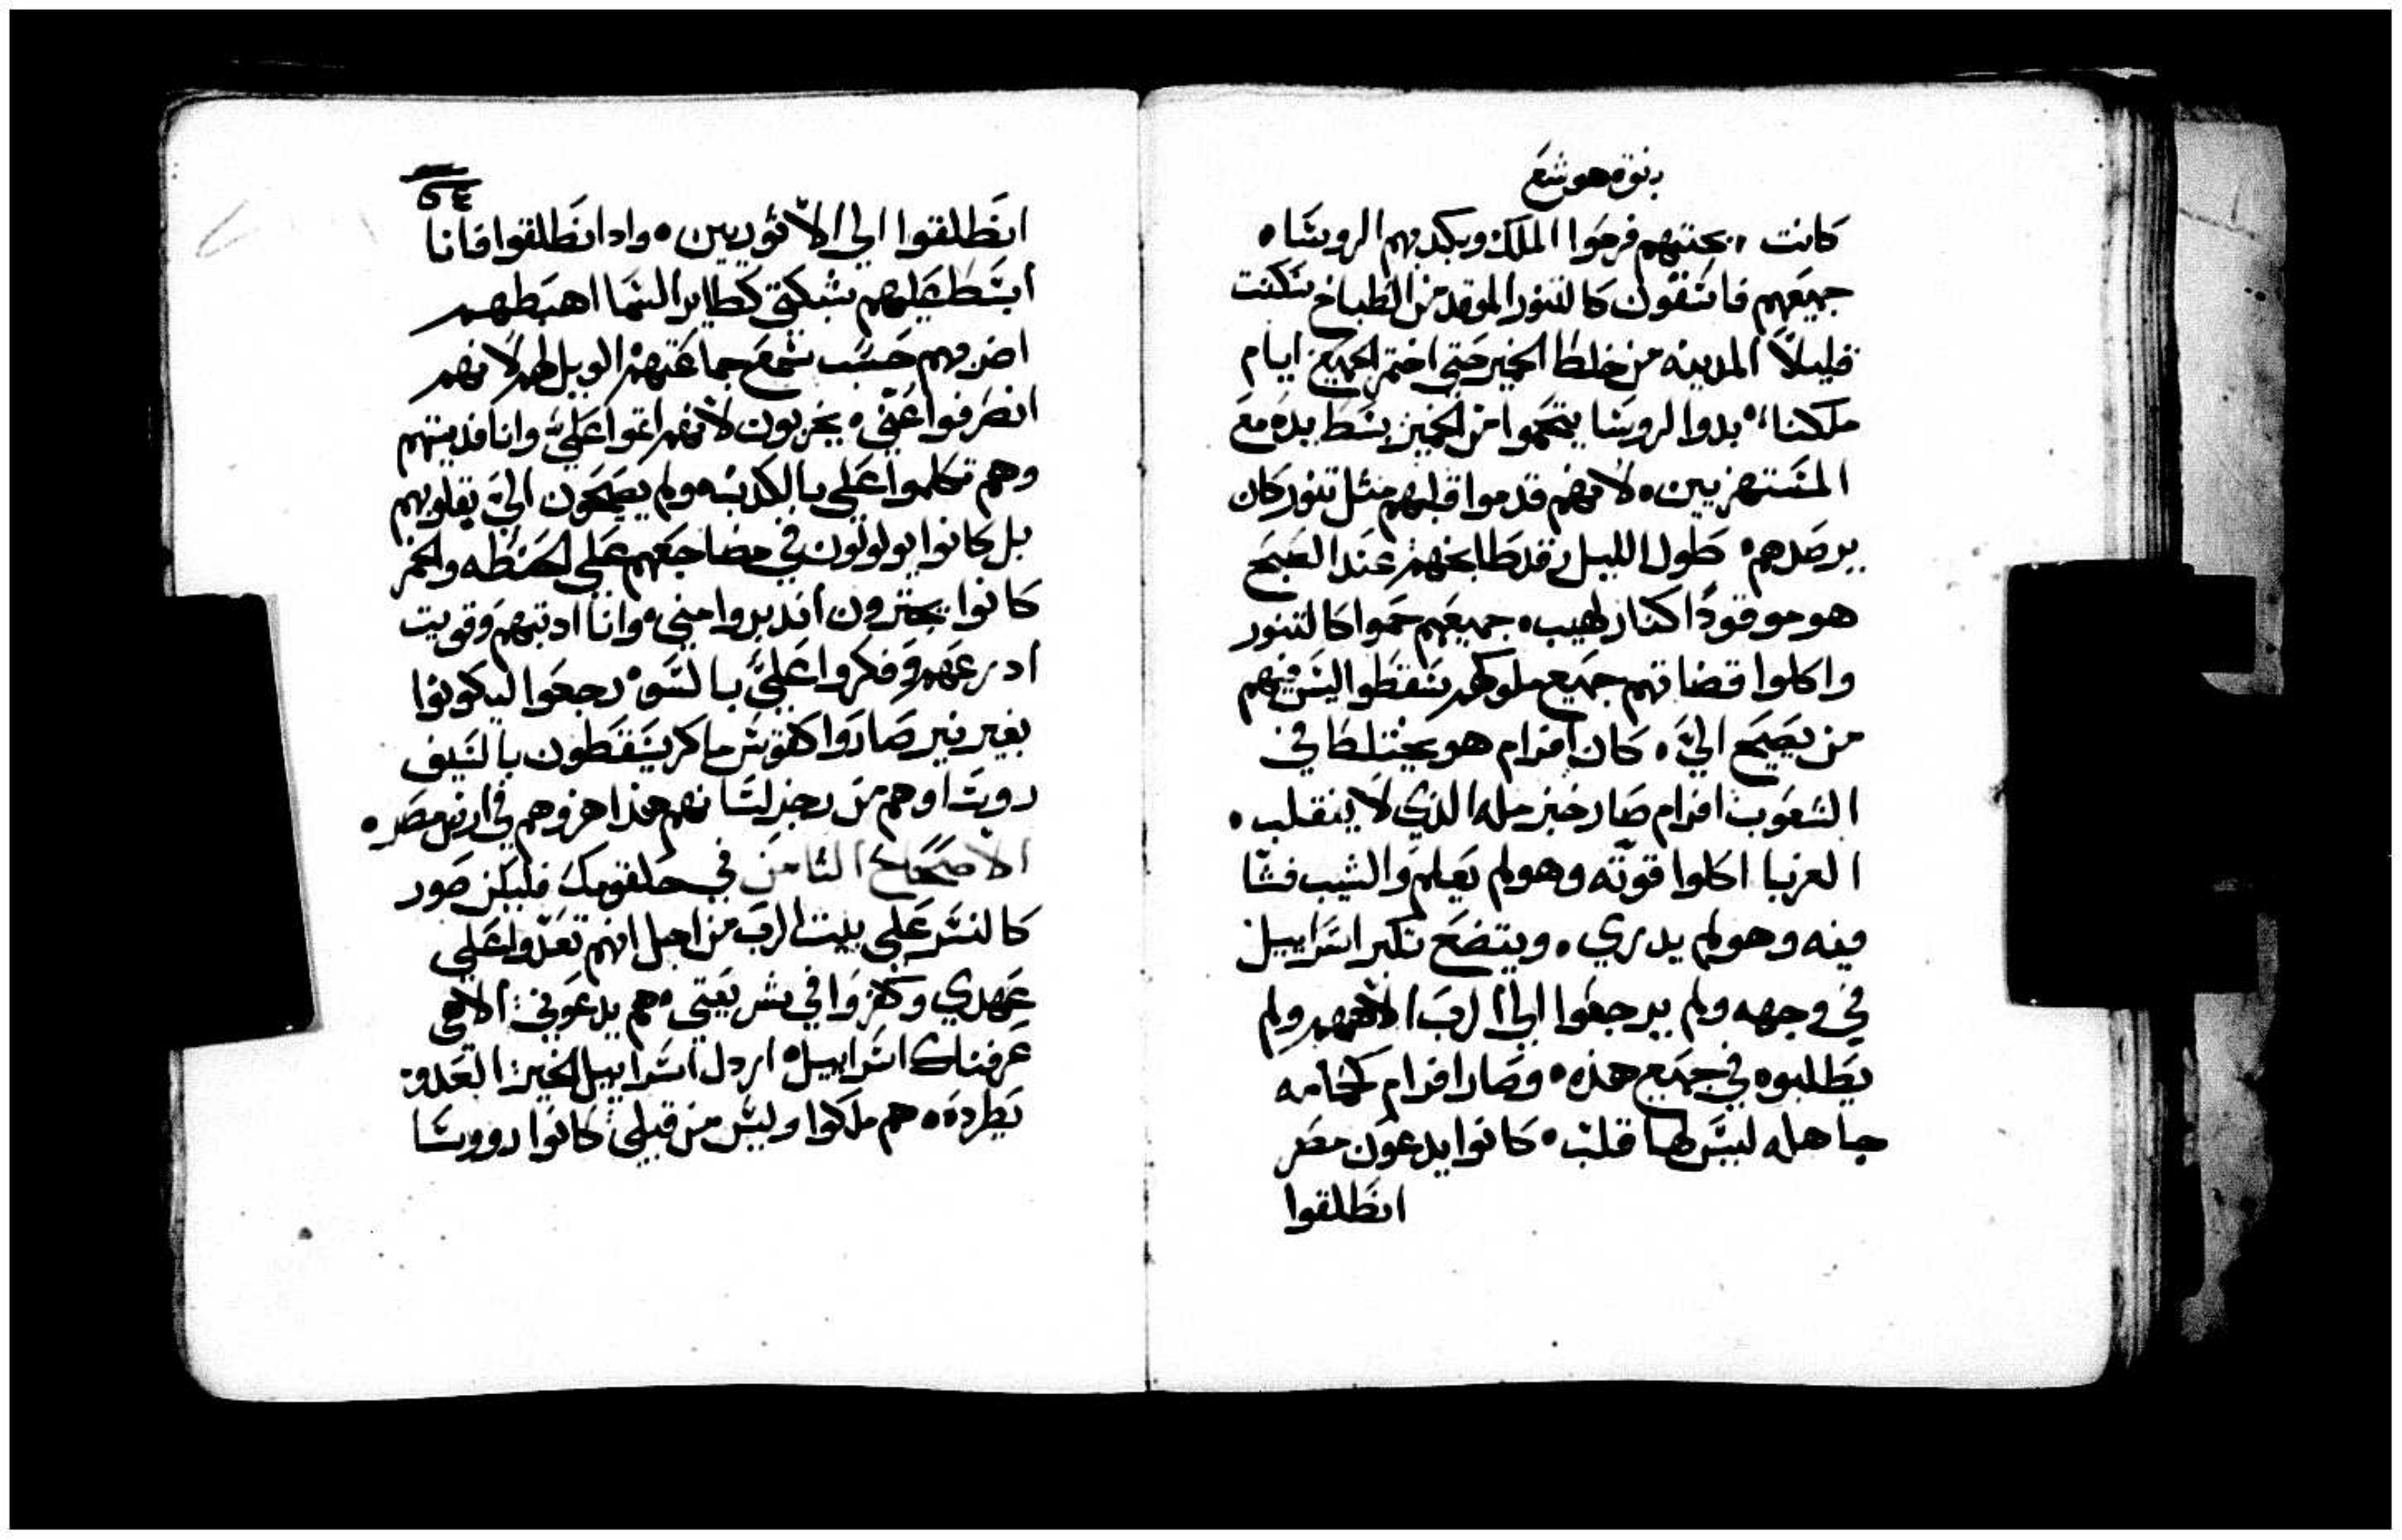 نبوة هوشع
كانت بخبتهم فرحوا الملك وبكدبهم الروسا
جميعهم فاسقون كالتنور الموقد من الطباخ سكنت
قليلاً المدينه من خلط الخمير حتى اختمر الجميع ايام
ملكنا بدوا الروسا يتحموا من الخمر بسط يده مع
المستهزيين لانهم قدموا قلبهم مثل تنور كان
يرصدهم طول الليل رقد طابخهم عند الصبح
هو موقودًا كنار لهيب جميعهم حموا كالتنور
واكلوا قضاتهم جميع ملوكهم سقطوا ليس فيهم
من يصيح اليّ كان افرام هو يختلط في
الشعوب افرام صار خبز مله الذي لا ينقلب
الغربا اكلوا قوته وهو لم يعلم والشيب فشا
فيه وهو لم يدري ويتضع تكبر اسراييل
في وجهه ولم يرجعوا الى الرب الاههم ولم
يطلبوه في جميع هذه وصار افرام كحمامه
جاهله ليس لها قلب كانوا يدعون مصر
انطلقوا
٥٤
انطلقوا الى الاثوريين واد انطلقوا فانا
ابسط عليهم شبكتي كطاير السما اهبطهم
اضربهم حسب سمع جماعتهم الويل لهم لانهم
انصرفوا عني يخربون لانهم اثموا عليّ وانا فديتهم
وهم تكلموا على بالكدب ولم يصيحون اليّ بقلوبهم
بل كانوا يولولون في مضاجعهم على الحنطه والخمر
كانوا يجترون اندبروا مني وانا ادبتهم وقويت
ادرعهم وفكروا عليّ بالسو رجعوا ليكونوا
بغير نير صاروا كقوس ماكر يسقطون بالسيف
روساوهم من رجز لسانهم هذا هزوهم في ارض مصر
الاصحاح الثامن في حلقومك فليكن صور
كالنسر على بيت الرب من اجل انهم تعدوا على
عهدي وكفروا في شريعتي هم يدعوني الاهي
عرفناك اسراييل اردل اسراييل الخير العدو
يطرده هم ملكوا وليس من قبلي كانوا رووسا